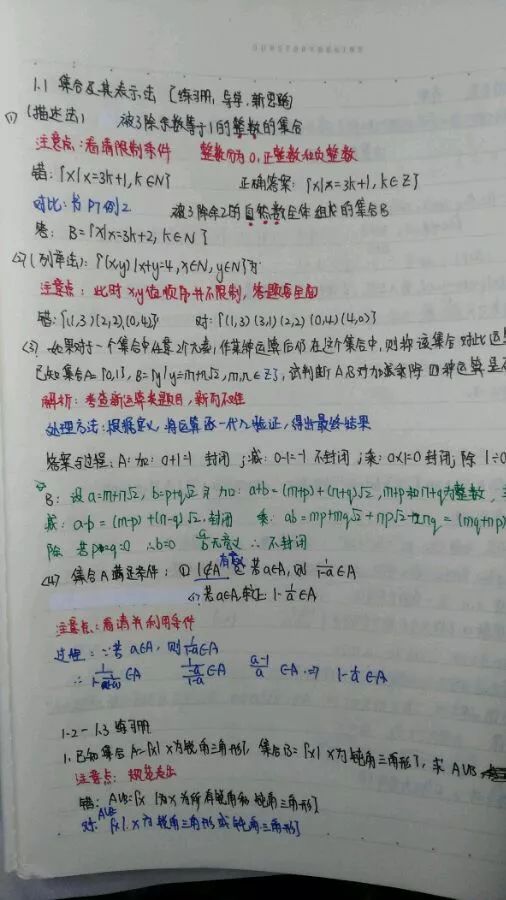 1.1 集合及其表示法 [练习册,导学,新思路
(1) (描述法) 被3除余数等于1的整数的集合
注意点:看清限制条件 整数分为0,正整数和负整数
错:{x|x=3k+1,k∈N} 正确答案:{x|x=3k+1,k∈Z}
对比:书P7例2 被3除余2的自然数全体组成的集合B
答:B={x|x=3k+2,k∈N}
<2> (列举法):{(x,y)|x+y=4,x∈N,y∈N}为:
注意点:此时x,y值顺序并不限制,答题要全面
错:{(1,3)(2,2),(0,4)} 对:{(1,3)(3,1)(2,2)(0,4)(4,0)}
<3> 如果对于一个集合中任意2个元素,作某种运算后仍在这个集合中,则称该集合对此运
已知集合A={0,1},B={y|y=m+n√2,m,n∈Z},试判断A,B对加减乘除四种运算是否
解析:考查新运算类题目,新而不难
处理方法:根据定义,将运算逐一代入验证,得出最终结果
答案与过程:A:加:0+1=1 封闭;减:0-1=-1 不封闭;乘:0×1=0封闭;除 1÷0
B:设a=m+n√2,b=p+q√2 加:a+b=(m+p)+(n+q)√2,m+p和n+q为整数,
减:a-b=(m-p)+(n-q)√2,封闭 乘:ab=mp+mq√2+np√2+2nq=(mq+np)
除 若p=q=0 ∴b=0 a/b无意义 ∴不封闭
<4> 集合A满足条件:① 1∉A ②若a∈A,则 1/(1-a)∈A
若a∈A,求证:1-1/a∈A
注意点:看清并利用条件
过程:∵若a∈A,则1/(1-a)∈A
∴ 1/(1-1/(1-a))∈A (a-1)/a ∈A ⇒ 1-1/a∈A
1.2-1.3 练习册
1.已知集合A={x|x为锐角三角形},集合B={x|x为钝角三角形},求A∪B
注意点:规范表出
错:A∪B={x|为x为所有锐角和钝角三角形}
对:A∪B={x|x为锐角三角形或钝角三角形}